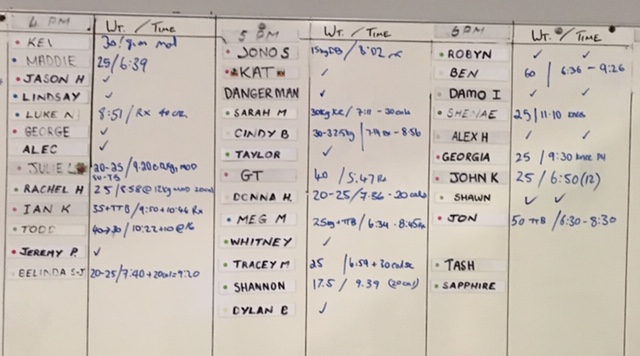 4 PM WT. / TIME
KEL
MADDIE 25/6:39
JASON H ✓
LINDSAY ✓
LUKE N 8:51/Rx
GEORGE ✓
ALEC ✓
JULIE L 20-25/
RACHEL H 25/8:58@12kg mod
IAN K 35+TTB/9:50+10:44 Rx
TODD
JEREMY P. ✓
BELINDA S-J 20-25/7:40+20cal=9:20
5 PM WT. / TIME
JONO S 15kg DB/8:02
KAT ✓
DANGERMAN ✓
SARAH M 30kg KE/7:11-20cals
CINDY B 30-32.5kg/7:19 Rx-8:56
TAYLOR ✓
GT 40/5:47 Rx
DONNA H. 20-25/7:36-20cals
MEG M 25kg+TTB/6:34-8:45
WHITNEY ✓
TRACEY M 25/6:59+20cals
SHANNON 17.5/9.39 (20cal)
DYLAN ✓
6 PM WT. / TIME
ROBYN ✓ ✓
BEN 60/6:36-9:26
DAMO I ✓ ✓
25/11:10
ALEX H ✓ ✓
GEORGIA 25/9:30
JOHN K 25/6:50(12)
SHAWN ✓ ✓
JON 50 TTB/6:30-8:30
TASH
SAPPHIRE